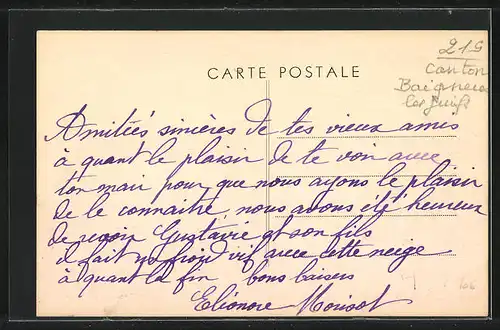 CARTE POSTALE
219
Canton
Baigneux
les Juifs
Amitiés sincères de tes vieux amis
à quant le plaisir de te voir avec
ton mari pour que nous ayons le plaisir
de le connaitre, nous avons été heureux
de revoir Gustave et son fils
il fait un froid vif avec cette neige
à quant la fin bons baisers
Elionore Morisot